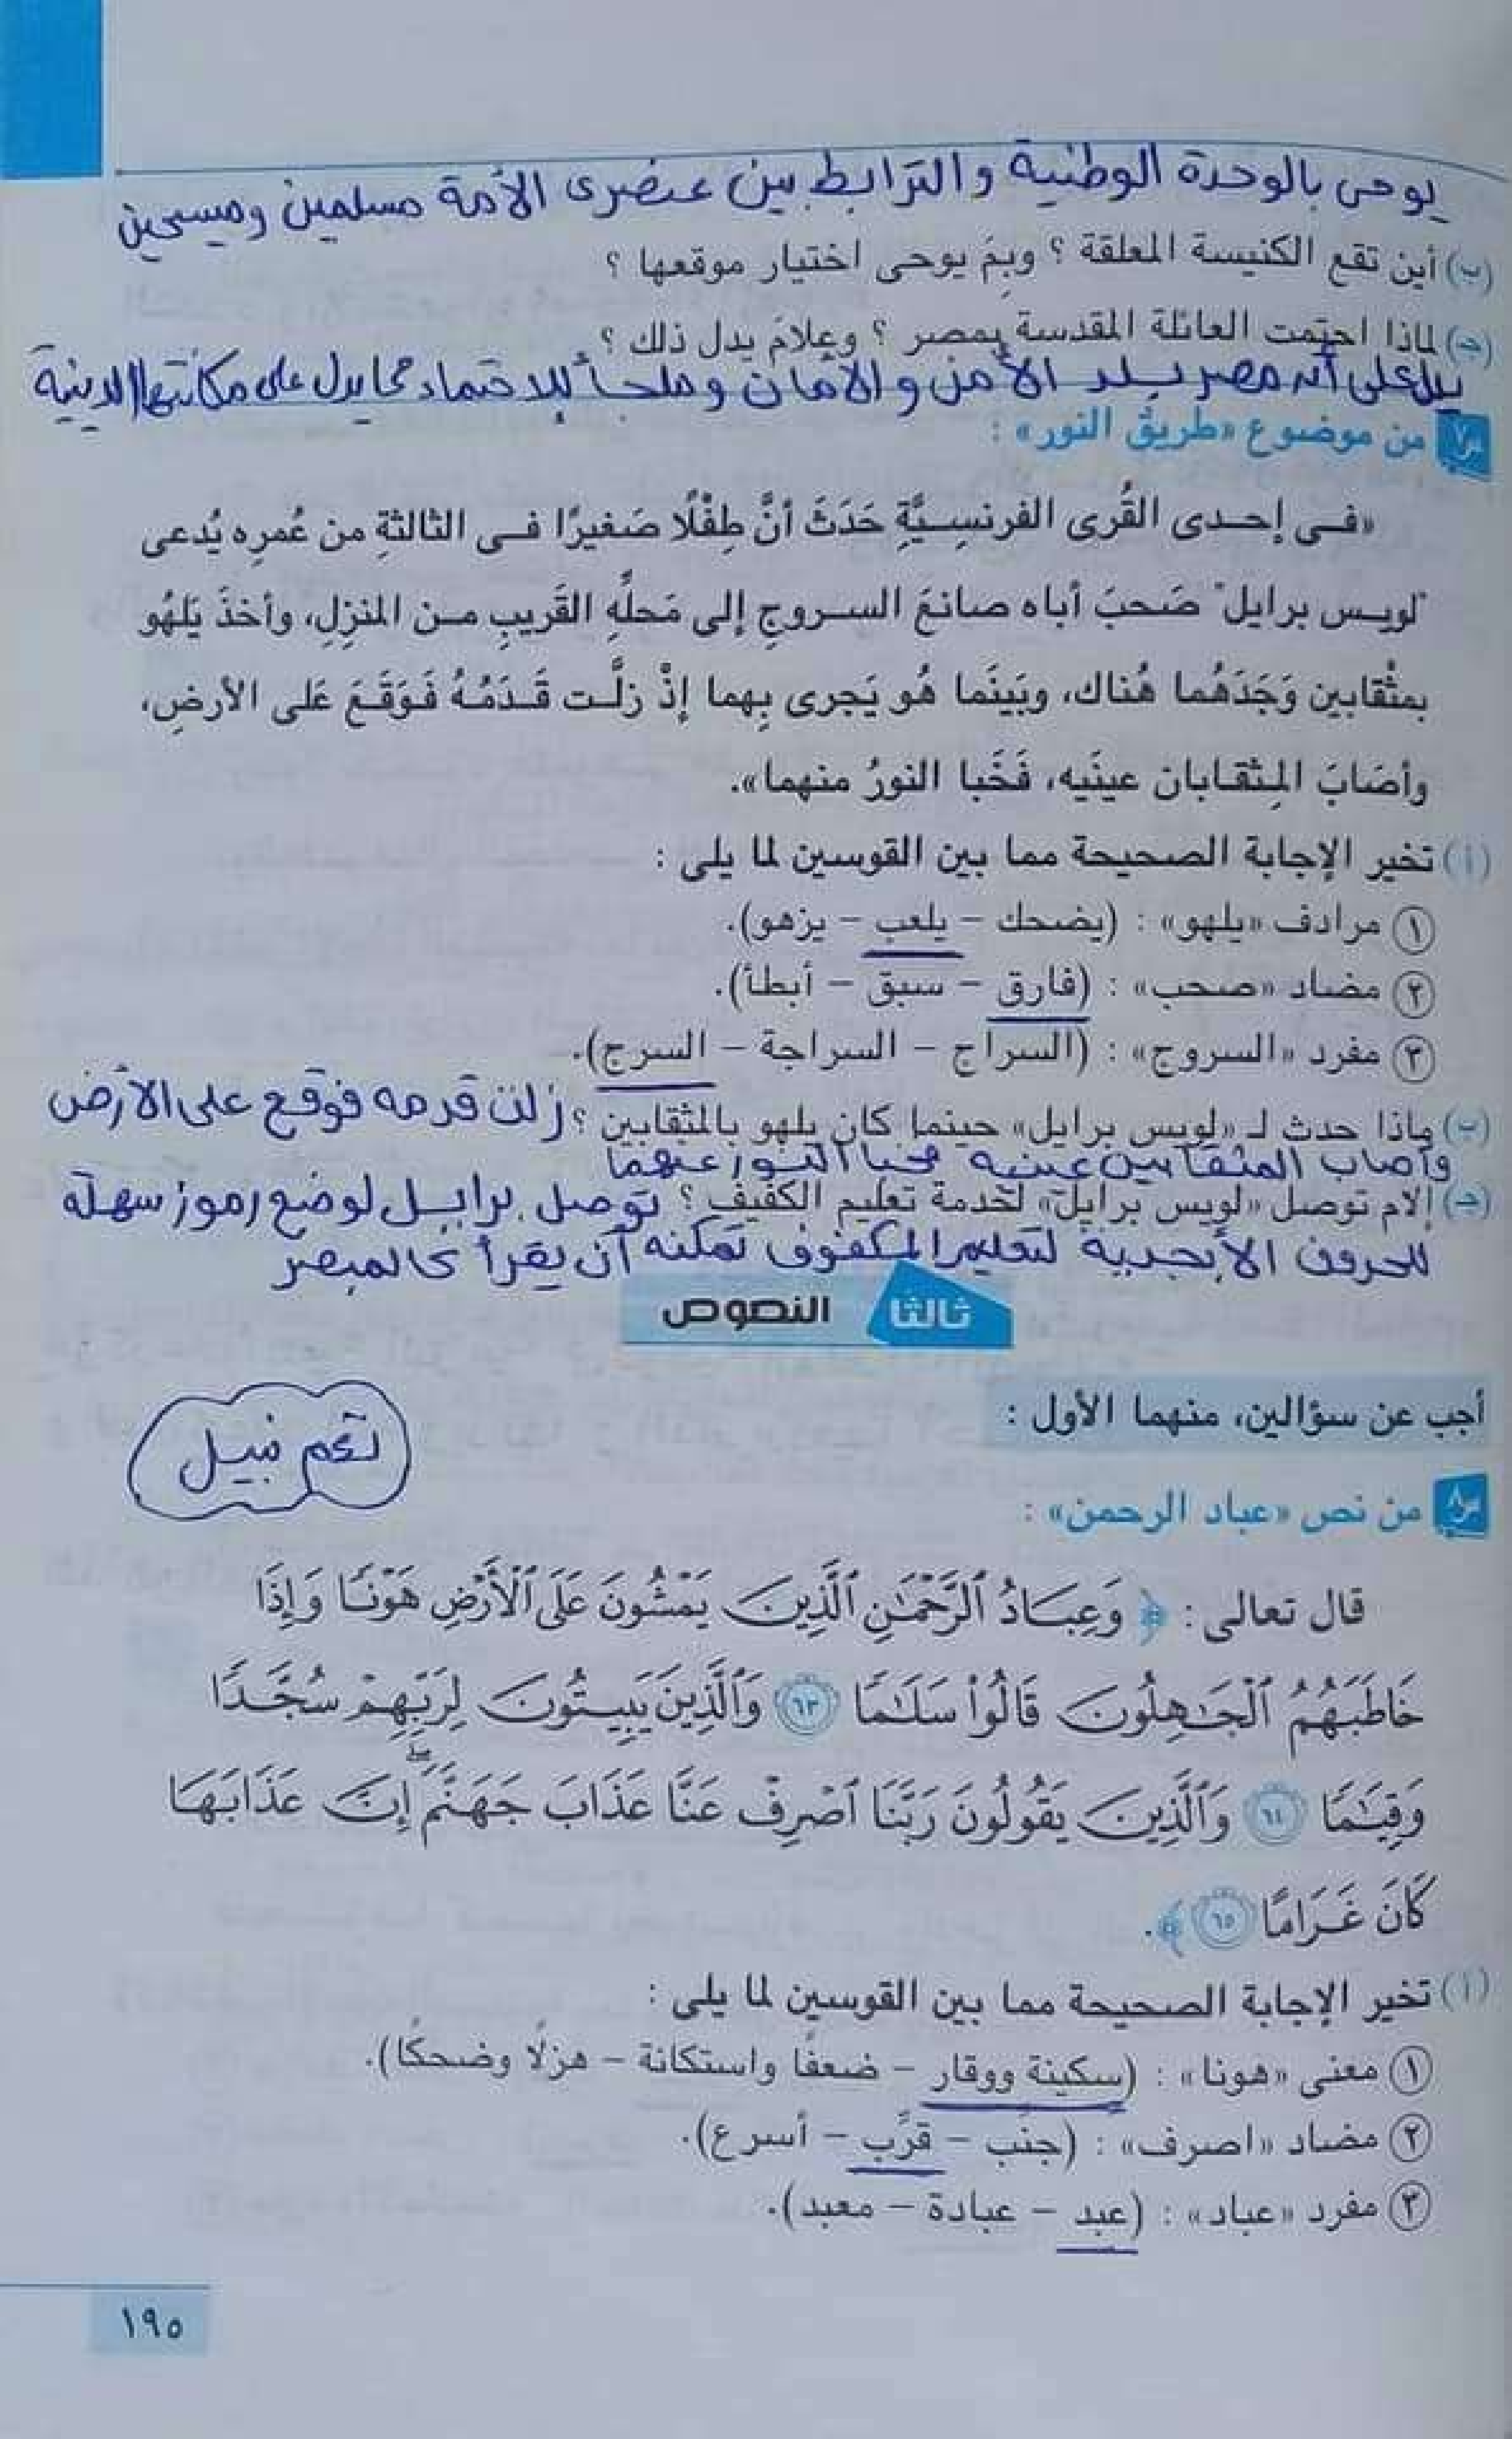 يوحى بالوحدة الوطنية والترابط بين عنصرى الأمة مسلمين ومسيحين
(ب) أين تقع الكنيسة المعلقة ؟ وبِمَ يوحى اختيار موقعها ؟
(جـ) لماذا احتمت العائلة المقدسة بمصر ؟ وعلامَ يدل ذلك ؟
يدل على أنه مصر بلد الأمن والأمان وملجأ للاحتماء مما يدل على مكانتها الدينية
س٧ من موضوع «طريق النور» :
«فى إحدى القُرى الفرنسِيَّةِ حَدَثَ أنَّ طِفْلًا صَغيرًا فى الثالثةِ من عُمرِه يُدعى
"لويس برايل" صَحبَ أباه صانعَ السروجِ إلى مَحلِّهِ القَريبِ من المنزِلِ، وأخذَ يَلهُو
بمثْقابين وَجَدَهُما هُناك، وبَينَما هُو يَجرى بِهما إذْ زلَّت قَدَمُهُ فَوَقَعَ عَلى الأرضِ،
وأصَابَ المِثقابان عينَيه، فَخَبا النورُ منهما».
(أ) تخير الإجابة الصحيحة مما بين القوسين لما يلى :
١ مرادف «يلهو» : (يضحك – يلعب – يزهو).
٢ مضاد «صحب» : (فارق – سبق – أبطأ).
٣ مفرد «السروج» : (السراج – السراجة – السرج).
(ب) ماذا حدث لـ «لويس برايل» حينما كان يلهو بالمثقابين ؟ زلت قدمه فوقع على الأرض
وأصاب المثقابين عينيه فخبا النور عنهما
(جـ) إلام توصل «لويس برايل» لخدمة تعليم الكفيف ؟ توصل برايل لوضع رموز سهلة
للحروف الأبجدية لتعليم المكفوف تمكنه أن يقرأ كالمبصر
ثالثا النصوص
أجب عن سؤالين، منهما الأول :
نعم نبيل
س٨ من نص «عباد الرحمن» :
قال تعالى : ﴿ وَعِبَادُ ٱلرَّحْمَٰنِ ٱلَّذِينَ يَمْشُونَ عَلَى ٱلْأَرْضِ هَوْنًا وَإِذَا
خَاطَبَهُمُ ٱلْجَٰهِلُونَ قَالُوا۟ سَلَٰمًا ٦٣ وَٱلَّذِينَ يَبِيتُونَ لِرَبِّهِمْ سُجَّدًا
وَقِيَٰمًا ٦٤ وَٱلَّذِينَ يَقُولُونَ رَبَّنَا ٱصْرِفْ عَنَّا عَذَابَ جَهَنَّمَ ۖ إِنَّ عَذَابَهَا
كَانَ غَرَامًا ٦٥ ﴾.
(أ) تخير الإجابة الصحيحة مما بين القوسين لما يلى :
١ معنى «هونا» : (سكينة ووقار – ضعفًا واستكانة – هزلًا وضحكًا).
٢ مضاد «اصرف» : (جنِّب – قرِّب – أسرع).
٣ مفرد «عباد» : (عبد – عبادة – معبد).
١٩٥